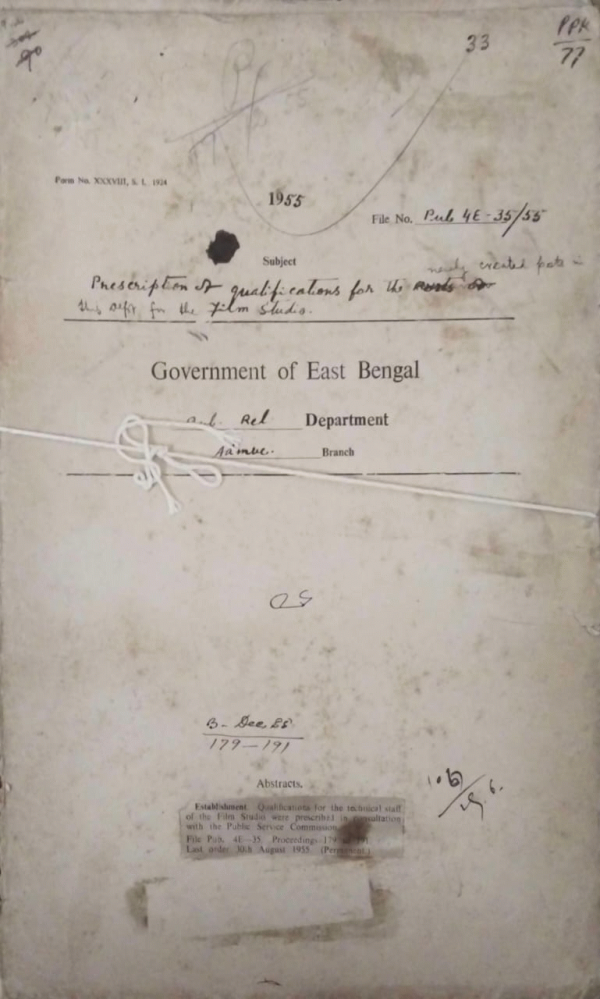 33
PPK
77
Form No. XXXVIII, S. I. 1924
1955
File No. Pub 4E-35/55
Subject
newly created posts in
Prescription of qualifications for the
this deptt for the Film Studio.
Government of East Bengal
Pub. Rel Department
Branch
B- Dec 55
179-191
Abstracts.
Establishment Qualifications for the technical staff
of the Film Studio were prescribed in consultation
with the Public Service Commission
File Pub. 4E-35 Proceedings 179
Last order 30th August 1955. (Permanent)